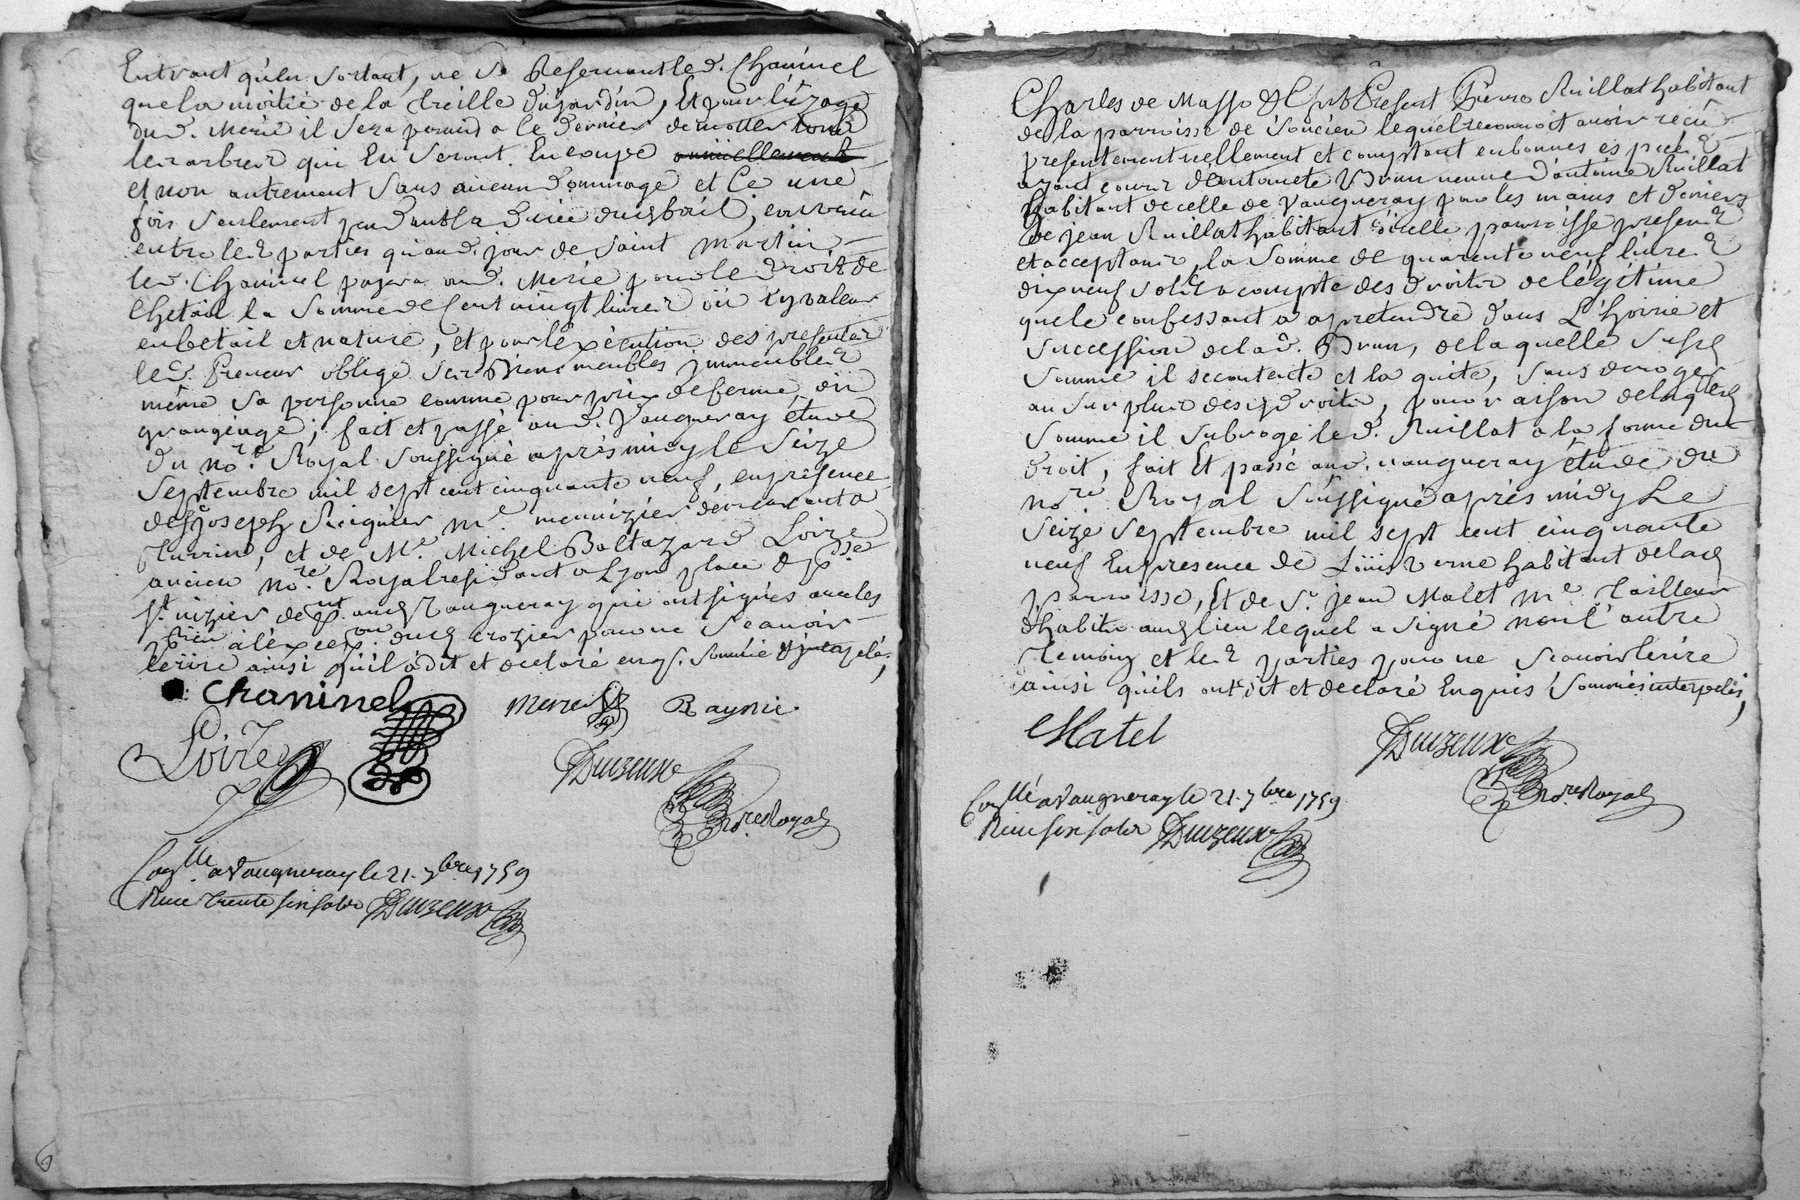 Entrant qu'en sortant, ne se Reservant led. Chaninel
que la moitié de la treille du jardin, Et pour l'uzage
dud. Merié il sera permis a ce dernier de
les arbres qui En seront En coupe annuellement
et non autrement sans aucun dommage et Ce une
fois seulement pendant la durée dud. bail, convenu
entre les parties qu'aud. jour de saint martin
led. Chaninel payera aud. Merié pour le droit de
Chetail la somme de Cent vingt livres ou sa valeur
en betail et nature, et pour l'exécution des presentes
led. Preneur oblige ses Biens meubles immeubles
même sa personne comme pour prix de ferme, ou
grangeage; fait et passé aud. Vaugneray étude
du nore. Royal soussigné après midy le seize
septembre mil sept cent cinquante neuf, en présence
de sr. joseph me. menuizier demeurant a
et de Me. Michel Baltazard Loire
ancien nore. Royal residant a Lyon place et psse.
st. nizier de pnt. aud. Vaugneray qui ont signés avec les
à l'exceon. dud. crozier pour ne scavoir
lécrire ainsi qu'il a dit et declaré enqs. sommé
Chaninel Merié Raynie
Loire
Duizeux
nore Royal
Conlle. a Vaugneray le 21. 7bre 1759
Reçu trente six sols Duizeux
Charles de Masso & C fut Présent Pierre Ruillat habitant
de la parroisse de soucieu lequel reconnoit avoir reçu
presentement reellement et comptant en bonnes espèces
ayant cours d'antoinete Brun veuve d'antoine Ruillat
habitant de celle de Vaugneray par les mains et deniers
De jean Ruillat habitant d'icelle parroisse present
et acceptant, la somme de quarente neuf livres
dix neuf sols a compte des droits de légitime
que le confessant a a prétendre dans L'hoirie et
succession de lad. Brun, de laquelle susd.
somme il se contente et la quite, sans deroger
au surplus desd. droits, pour raison de laqlle.
somme il subroge led. Ruillat a la forme du
droit, fait Et passé aud. vaugneray étude du
nore. Royal soussigné après midy Le
seize septembre mil sept cent cinquante
neuf En presence de Louis Verne habitant de lad.
parroisse, Et de sr. jean Matet me. Tailleur
d'habits aud. lieu lequel a signé non l'autre
temoin et les parties pour ne scavoir lécrire
ainsi qu'ils ont dit et declaré Enquis sommés interpelés,
Matel
Duizeux
nore Royal
Conllé a Vaugneray le 21. 7bre 1759
Reçu six sols Duizeux